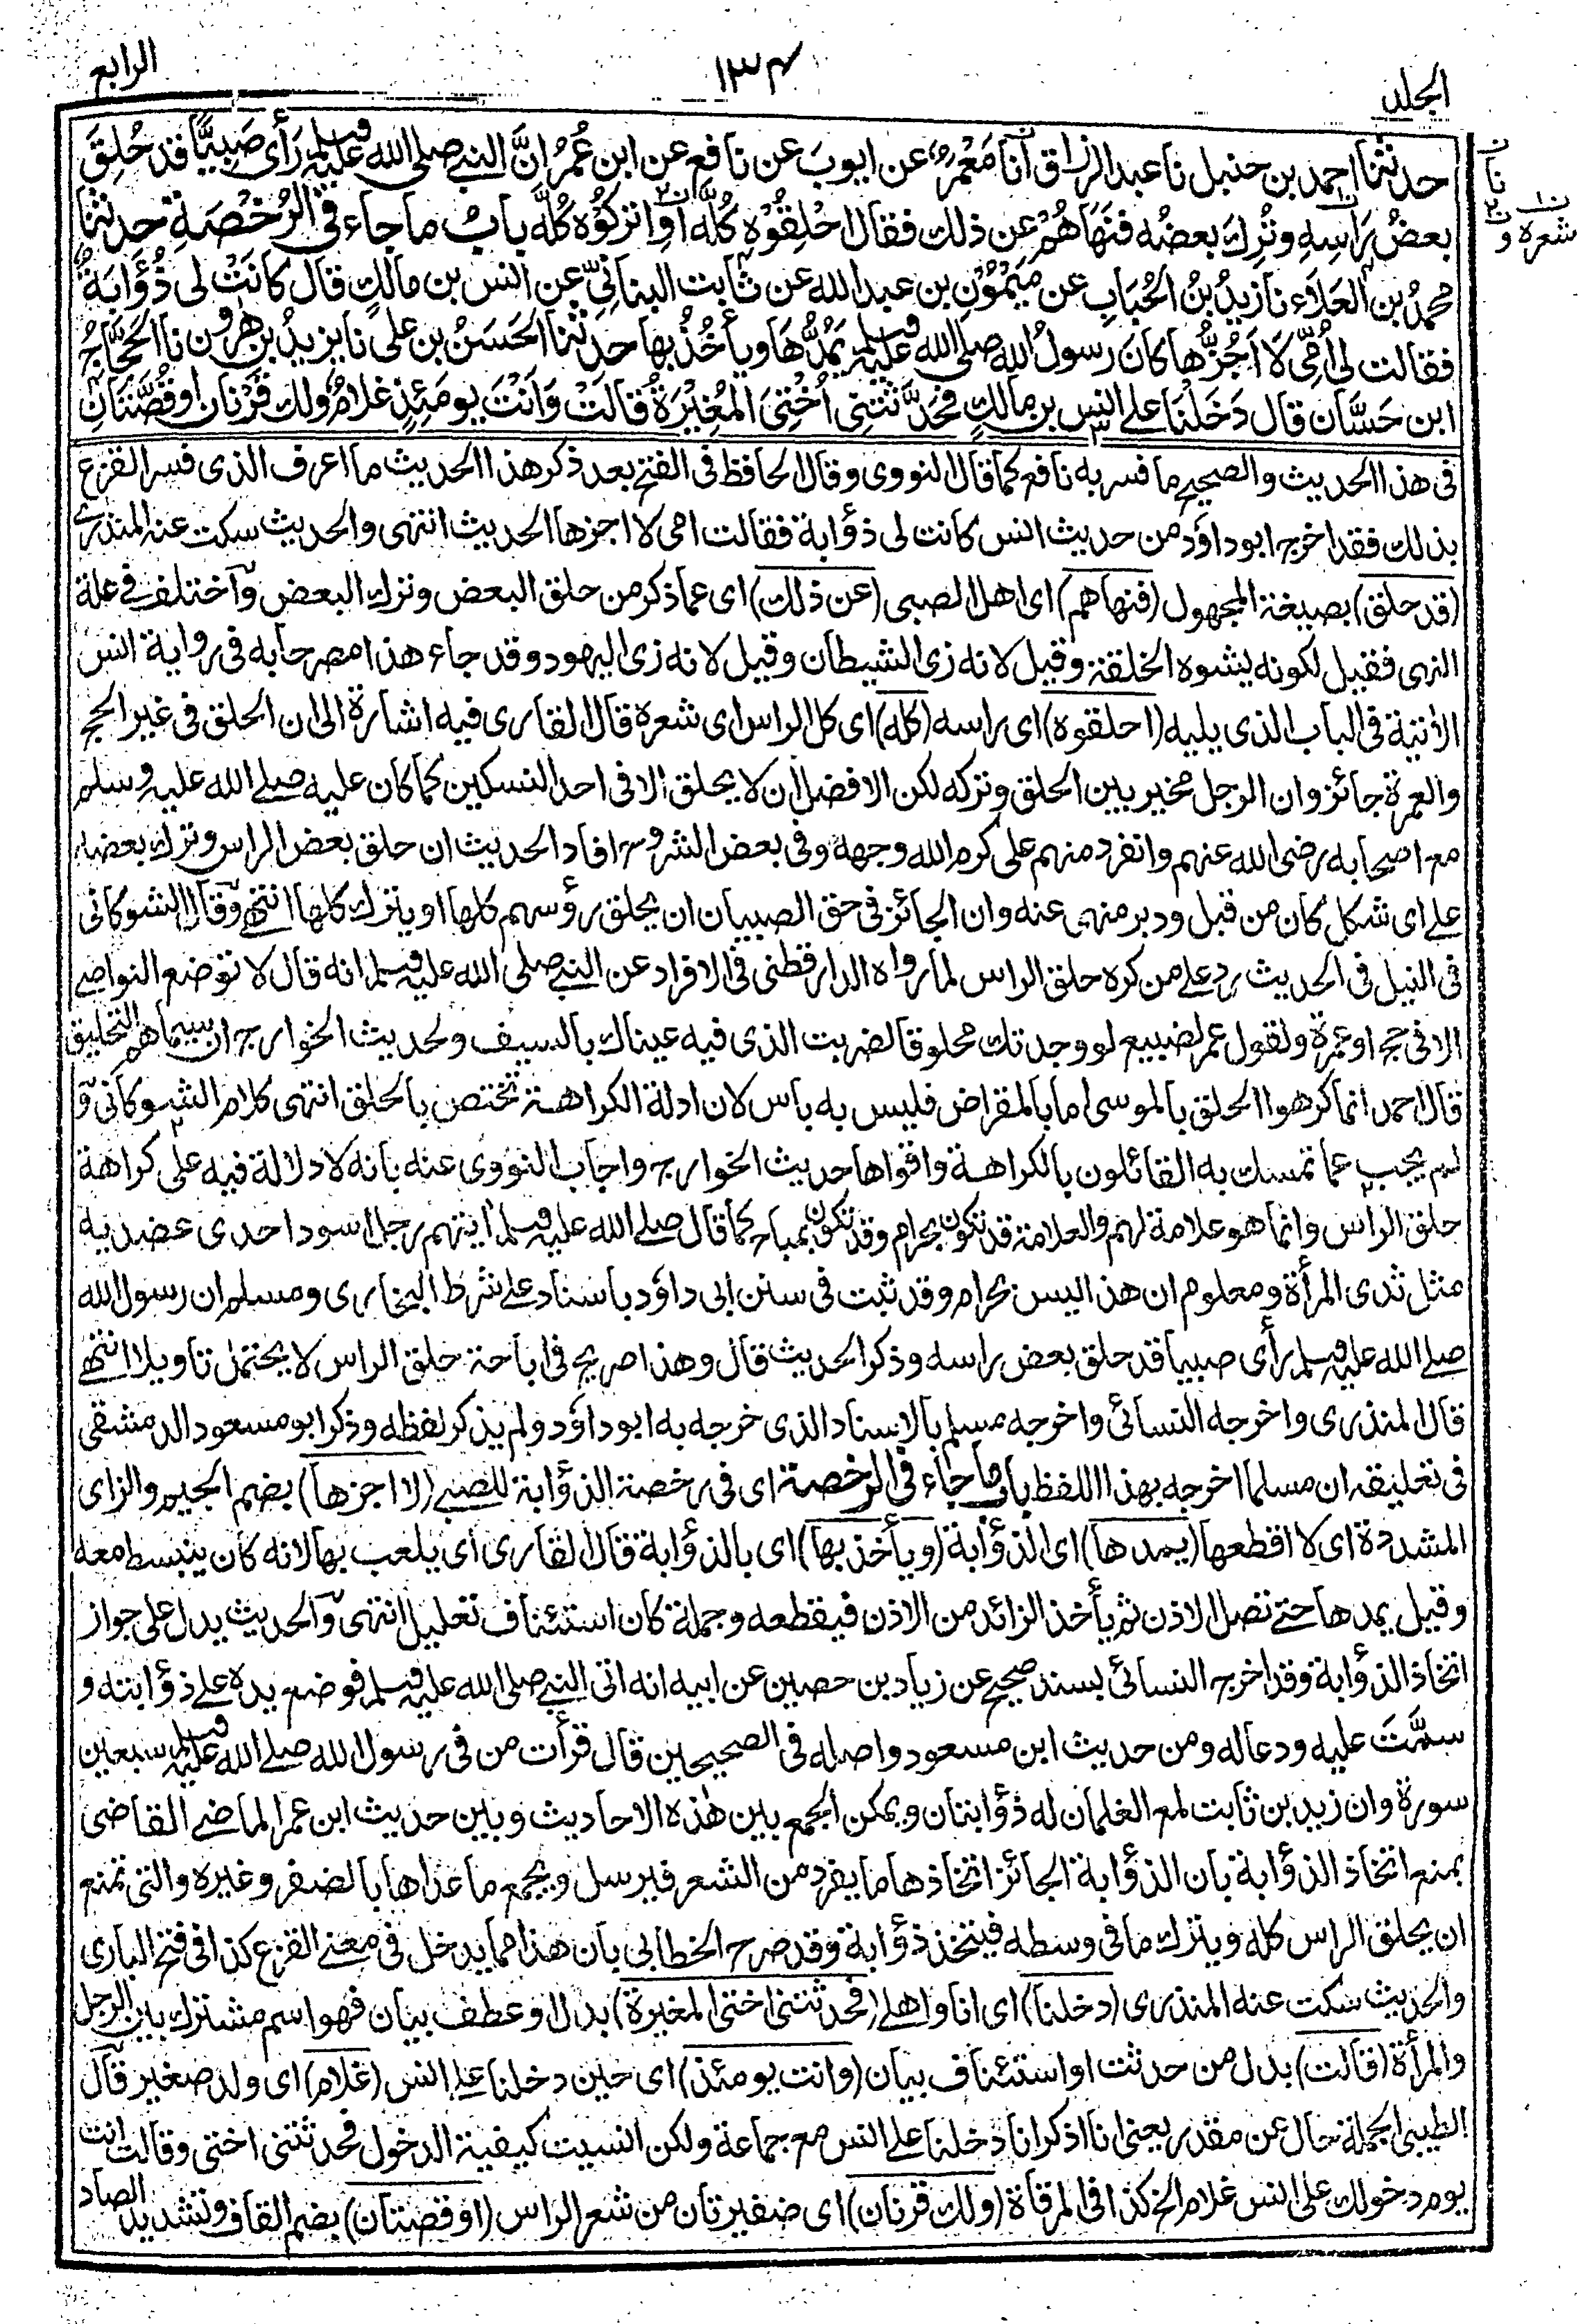 الجلد
١٣٤
الرابع
حدثنا احمد بن حنبل نا عبد الرزاق انا مَعْمَرٌ عن ايوبَ عن نافع عن ابن عُمَرُ انَّ النبي صلى الله عليه وسلم رَأَى صَبِيًّا قد حُلِقَ
بعضُ رَاسِهِ وتُرِكَ بعضُه فنَهَاهُمْ عن ذلك فقال احْلِقُوْهِ كُلَّهُ اَوِ اتركُوْه كُلَّه بابُ ما جاء في الرُخْصَةِ حدثنا
محمدُ بن العَلَاءِ نا زيدُ بنُ الحُبَابِ عن مَيْمُوْنِ بن عبد الله عن ثَابت البنانِيّ عن انس بن مالكٍ قال كانَتْ لى ذُؤَابَةٌ
فقالت لى اُمِّى لَا اَجُزُّها كانَ رسولُ اللهِ صلى الله عليه وسلم يَمُدُّهَا ويأْخُذُ بها حدثنا الحَسَنُ بن على نا يزيدُ بن هٰرون نا الحَجَّاجُ
ابن حَسَّان قال دَخَلْنَا على انس بن مالكٍ فحَدَّثَتْنِى اُخْتِىَ المُغِيْرَةُ قالَتْ وَاَنْتَ يومَئِذٍ غلامٌ ولك قَرْنَانِ او قُصَّتَانِ
فى هذا الحديث والصحيح ما فسر به نافع كما قال النووى وقال الحافظ فى الفتح بعد ذكر هذا الحديث ما اعرف الذى فسر القزع
بذلك فقد اخرج ابو داؤد من حديث انس كانت لى ذؤابة فقالت امى لا اجزها الحديث انتهى والحديث سكت عنه المنذرى
(قد حلق) بصيغة المجهول (فنهاهم) اى اهل الصبى (عن ذلك) اى عما ذكر من حلق البعض وترك البعض واختلف فى علة
النهى فقيل لكونه يشوه الخلقة وقيل لانه زى الشيطان وقيل لانه زى اليهود وقد جاء هذا مصرحا به فى رواية انس
الاٰتية فى الباب الذى يليه (احلقوه) اى راسه (كله) اى كل الراس اى شعرة قال القارى فيه اشارة الى ان الحلق فى غير الحج
والعمرة جائز وان الرجل مخير بين الحلق وتركه لكن الافضل ان لا يحلق الا فى احد النسكين كما كان عليه صلى الله عليه وسلم
مع اصحابه رضى الله عنهم وانفرد منهم على كرم الله وجهه وفى بعض الشروح افاد الحديث ان حلق بعض الراس وترك بعضه
على اى شكل كان من قبل ودبر منهى عنه وان الجائز فى حق الصبيان ان يحلق رؤسهم كلها او يترك كلها انتهى وقال الشوكانى
فى النيل فى الحديث رد على من كره حلق الراس لما رواه الدارقطنى فى الافراد عن النبى صلى الله عليه وسلم انه قال لا توضع النواصى
الا فى حج او عمرة ولقول عمر لضبيع لو وجدتك محلوقا لضربت الذى فيه عيناك بالسيف ولحديث الخوارج ان سيماهم التحليق
قال احمد انما كرهوا الحلق بالموسى اما بالمقراض فليس به باس لان ادلة الكراهة تختص بالحلق انتهى كلام الشوكانى و
لم يجب عما تمسك به القائلون بالكراهة واقواها حديث الخوارج واجاب النووى عنه بانه لا دلالة فيه على كراهة
حلق الراس وانما هو علامة لهم والعلامة قد تكون بحرام وقد تكون بمباح كما قال صلى الله عليه وسلم ايتهم رجل اسود احدى عضديه
مثل ثدى المرأة ومعلوم ان هذا ليس بحرام وقد ثبت فى سنن ابى داؤد باسناد على شرط البخارى ومسلم ان رسول الله
صلى الله عليه وسلم رأى صبيا قد حلق بعض راسه وذكر الحديث قال وهذا صريح فى اباحة حلق الراس لا يحتمل تاويلا انتهى
قال المنذرى واخرجه النسائى واخرجه مسلم بالاسناد الذى خرجه به ابو داؤد ولم يذكر لفظه وذكر ابو مسعود الدمشقى
فى تعليقه ان مسلما اخرجه بهذا اللفظ باب ما جاء فى الرخصة اى فى رخصة الذؤابة للصبى (لا اجزها) بضم الجيم والزاى
المشددة اى لا اقطعها (يمدها) اى الذؤابة (ويأخذ بها) اى بالذؤابة قال القارى اى يلعب بها لانه كان ينبسط معه
وقيل يمدها حتى تصل الاذن ثم يأخذ الزائد من الاذن فيقطعه وجملة كان استئناف تعليل انتهى والحديث يدل على جواز
اتخاذ الذؤابة وقد اخرج النسائى بسند صحيح عن زياد بن حصين عن ابيه انه اتى النبى صلى الله عليه وسلم فوضع يده على ذؤابته و
سمَّتَ عليه ودعا له ومن حديث ابن مسعود واصله فى الصحيحين قال قرأت من فى رسول الله صلى الله عليه وسلم سبعين
سورة وان زيد بن ثابت لمع الغلمان له ذؤابتان ويمكن الجمع بين هٰذه الاحاديث وبين حديث ابن عمر الماضى القاضى
بمنع اتخاذ الذؤابة بان الذؤابة الجائز اتخاذها ما يفرد من الشعر فيرسل ويجمع ما عداها بالضفر وغيره والتى تمنع
ان يحلق الراس كله ويترك ما فى وسطه فيتخذ ذؤابة وقد صرح الخطابى بان هذا مما يدخل فى معنى القزع كذا فى فتح البارى
والحديث سكت عنه المنذرى (دخلنا) اى انا واهلى (فحدثتنى اختى المغيرة) بدل او عطف بيان فهو اسم مشترك بين الرجل
والمرأة (قالت) بدل من حدثت او استئناف بيان (وانت يومئذ) اى حين دخلنا على انس (غلام) اى ولد صغير قال
الطيبى الجملة حال عن مقدر يعنى انا اذكر انا دخلنا على انس مع جماعة ولكن انسيت كيفية الدخول فحدثتنى اختى وقالت انت
يوم دخولك على انس غلام الخ كذا فى المرقاة (ولك قرنان) اى ضفيرتان من شعر الراس (او قصتان) بضم القاف وتشديد الصاد
نا
شعره